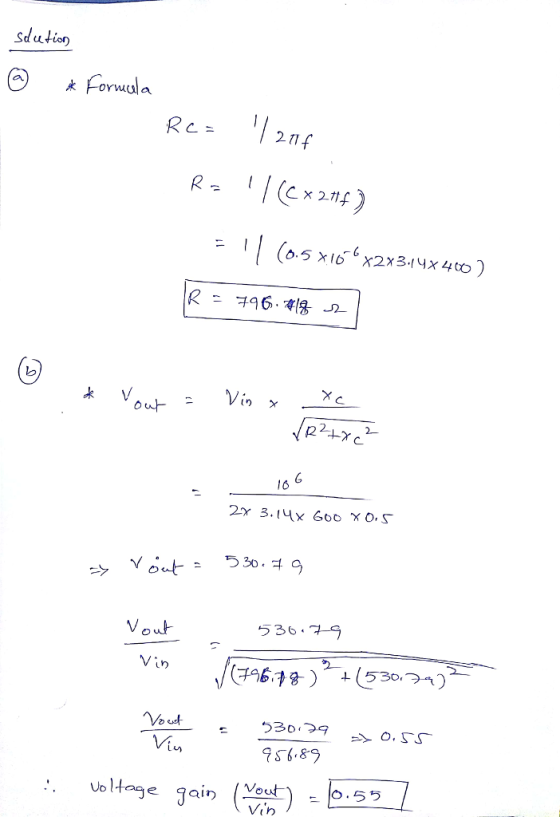 Solution
(a) * Formula
RC = 1/2πf
R = 1/(C×2πf)
= 1/(0.5×10^-6×2×3.14×400)
R = 796.18 Ω
(b)
* Vout = Vin × Xc/√(R²+Xc²)
= 10^6/(2×3.14×600×0.5)
=> Vout = 530.79
Vout/Vin = 530.79/√((796.18)²+(530.79)²)
Vout/Vin = 530.79/956.89 => 0.55
∴ voltage gain (Vout/Vin) = 0.55